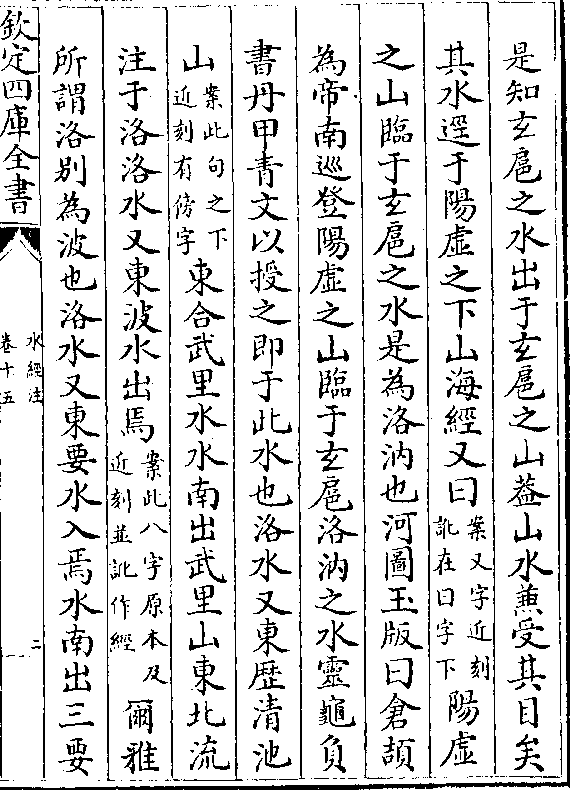 是知玄扈之水出于玄扈之山葢山水兼受其目矣
其水逕于陽虛之下山海經又曰案又字近刻訛在曰字下陽虛
之山臨于玄扈之水是為洛汭也河圖玉版曰倉頡
為帝南巡登陽虛之山臨于玄扈洛汭之水靈龜負
書丹甲青文以授之即于此水也洛水又東歷清池
山案此句之下近刻有傍字東合武里水水南出武里山東北流
注于洛洛水又東波水出焉案此八字原本及近刻並訛作經爾雅
所謂洛別為波也洛水又東要水入焉水南出三要
欽定四庫全書
水經注
卷十五
二